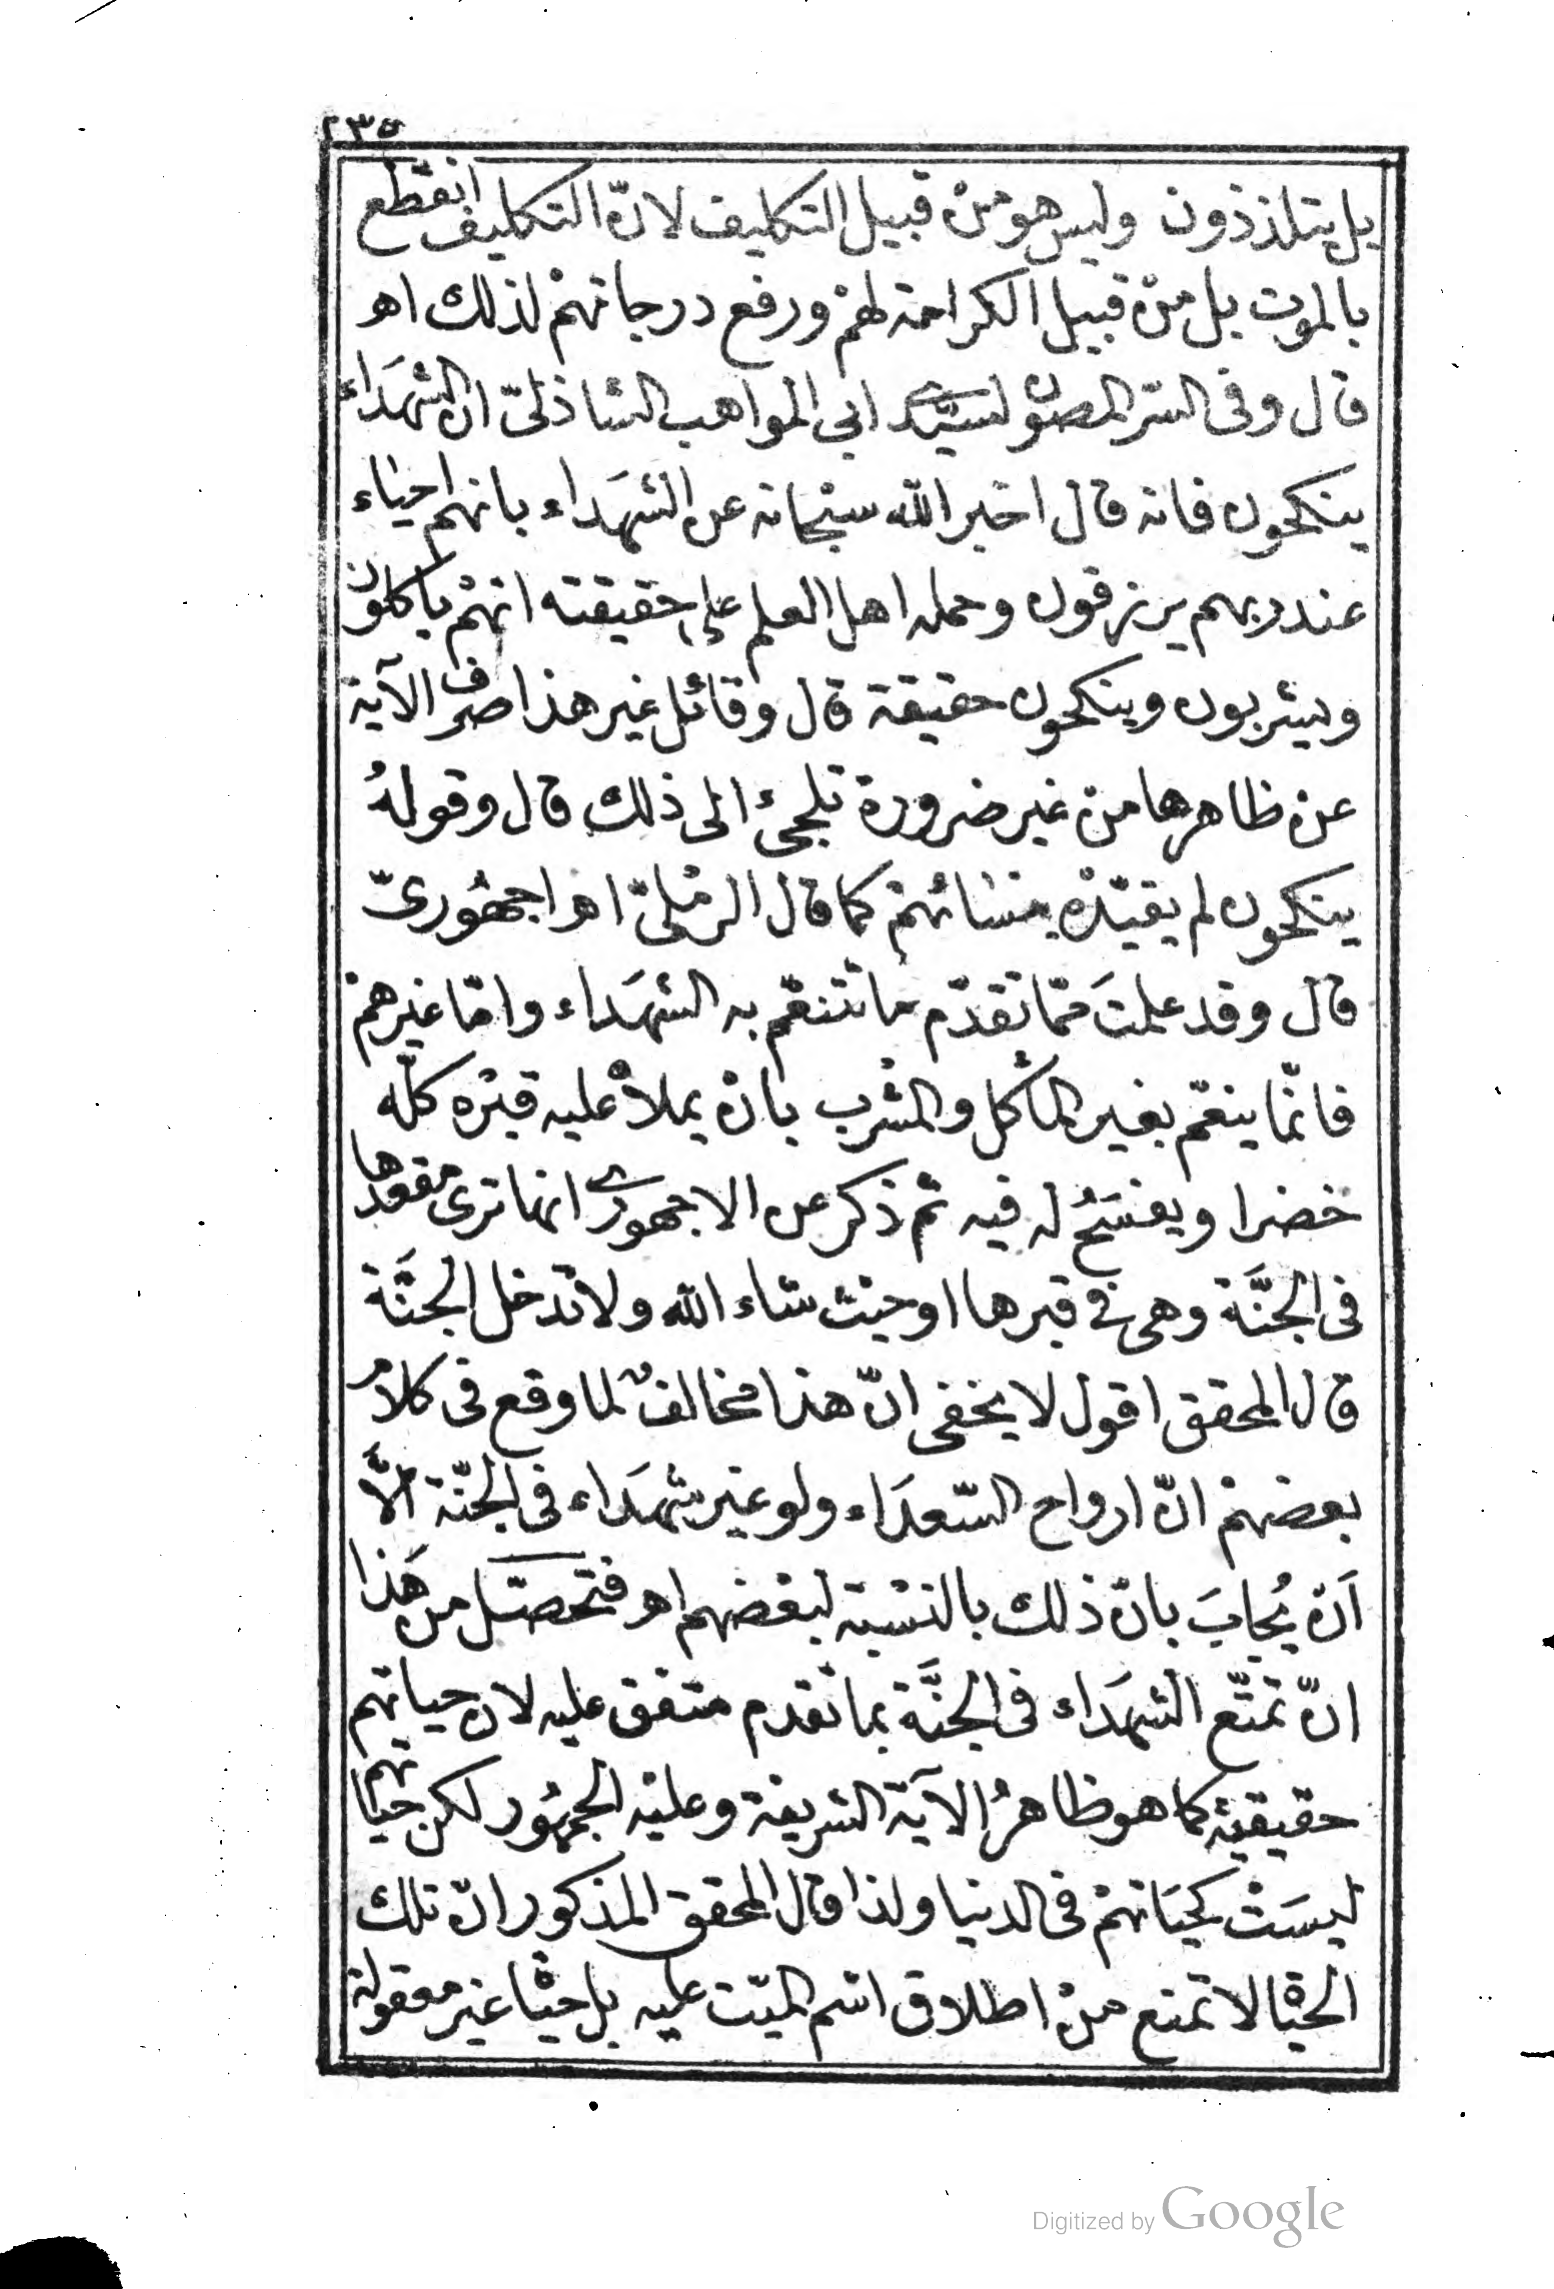 ٢٣٥
بل يتلذذون وليس هو منْ قبيل التكليف لانّ التكليف انقطع
بالموت بل منْ قبيل الكرامة لهمْ ورفع درجاتهمْ لذلك اهـ
قال وفى السّر المصوْن لسيّدى ابى المواهب الشاذلىّ ان الشهَداء
ينكحون فانه قال اخبر اللّه سبْحانه عن الشهَداء بانهم احيَاء
عند ربهم يرزقون وحمله اهل العلم على حقيقته انهمْ ياكلون
ويشربون وينكحون حقيقة قال وقائل غير هذا صرف الآية
عنْ ظاهرها من غير ضرورة تلجئ الى ذلك قال وقولهُ
ينكحون لم يقيّدْه بنسَائهمْ كما قال الرمْلىّ اهـ اجهُورىّ
قال وقد علمتَ ممّا تقدّم ما تتنعّم به الشهَداء وامّا غيْرهمْ
فانّما ينعّم بغير المأكل والمشْرب بانْ يملأ عليه قبْره كلّه
خضرا ويفسَحُ له فيه ثم ذكر عن الاجهورى انها ترى مقعدها
فى الجنَّة وهى فى قبرها اوحيْث شاء اللّه ولا تدْخل الجنَّة
قال المحقق اقول لا يخفى انّ هذا مخالفٌ لما وقع فى كلام
بعضهمْ انّ ارواح السّعدَاء ولو غيْر شهَداء فى الجنّة الاَّ
اَنْ يُجابَ بانّ ذلك بالنسْبة لبعْضهم اهـ فتحصّل من هَذا
انّ تمتّع الشهَداء فى الجنَّة بما تقدم متفق عليه لان حياتهم
حقيقيَّة كما هو ظاهرُ الآية الشريفة وعليْه الجمهُور لكن حيَاتهم
ليسَتْ كحيَاتهمْ فى الدنيا ولذا قال المحقق المذكور انّ تلك
الحيَاة لا تمنع منْ اطلاق اسْم الميّت عليه بل حيَاة غيْر معقولة
Digitized by Google